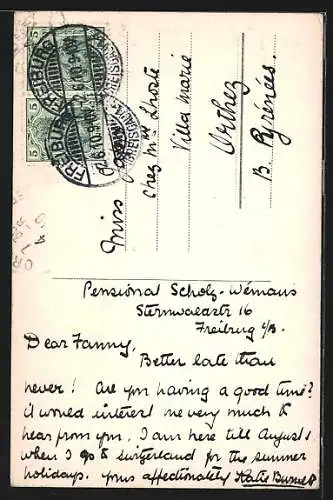 5
5
FREIBURG
FREIBURG
(BREISGAU)
Miss
chez Mme Lhoste
Villa Marie
Orthez
B. Pyrénées.
Pensionat Scholz-Wemans
Sternwaldstr 16
Freiburg i/B.
Dear Fanny,
Better late than
never! Are you having a good time?
it would interest me very much to
hear from you. I am here till August
when I go to Switzerland for the summer
holidays. yours affectionately Katie